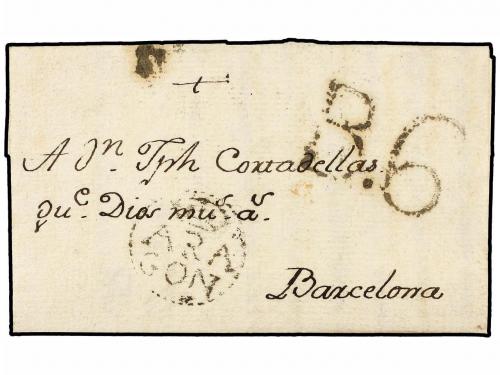 R.6
A Jn. Jph Cortadellas
que. Dios mus. as.
ARAGON
Barcelona